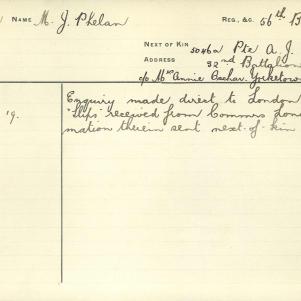 NAME M. J. Phelan REG., &C. 56th B
NEXT OF KIN 5046a Pte A. J.
ADDRESS 32nd Battalion
c/o Mrs Annie Yorketow
Enquiry made direct to London
'9. "slips" received from Commrs Lon
mation therein sent next-of-kin